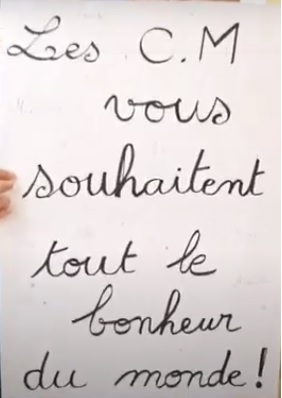 Les C.M
vous
souhaitent
tout le
bonheur
du monde!